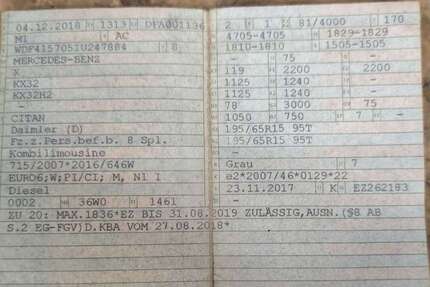 04.12.2018 1313 DFA001136
M1 AC
WDF4157051U247884 8
MERCEDES-BENZ
X
KX32
KX32H2
-
CITAN
Daimler (D)
Fz.z.Pers.bef.b. 8 Spl.
Kombilimousine
715/2007*2016/646W
EURO6;W;PI/CI; M, N1 I
Diesel
0002 36W0 1461
2 1 81/4000 170
4705-4705 1829-1829
1810-1810 1505-1505
- 75 -
119 2200 2200
1125 1240 -
1125 1240 -
78 3000 75
1050 750 7 -
195/65R15 95T
195/65R15 95T
-
Grau 7
e2*2007/46*0129*22
23.11.2017 K EZ262183
ZU 20: MAX.1836*EZ BIS 31.08.2019 ZULÄSSIG,AUSN.(§8 AB
S.2 EG-FGV)D.KBA VOM 27.08.2018*